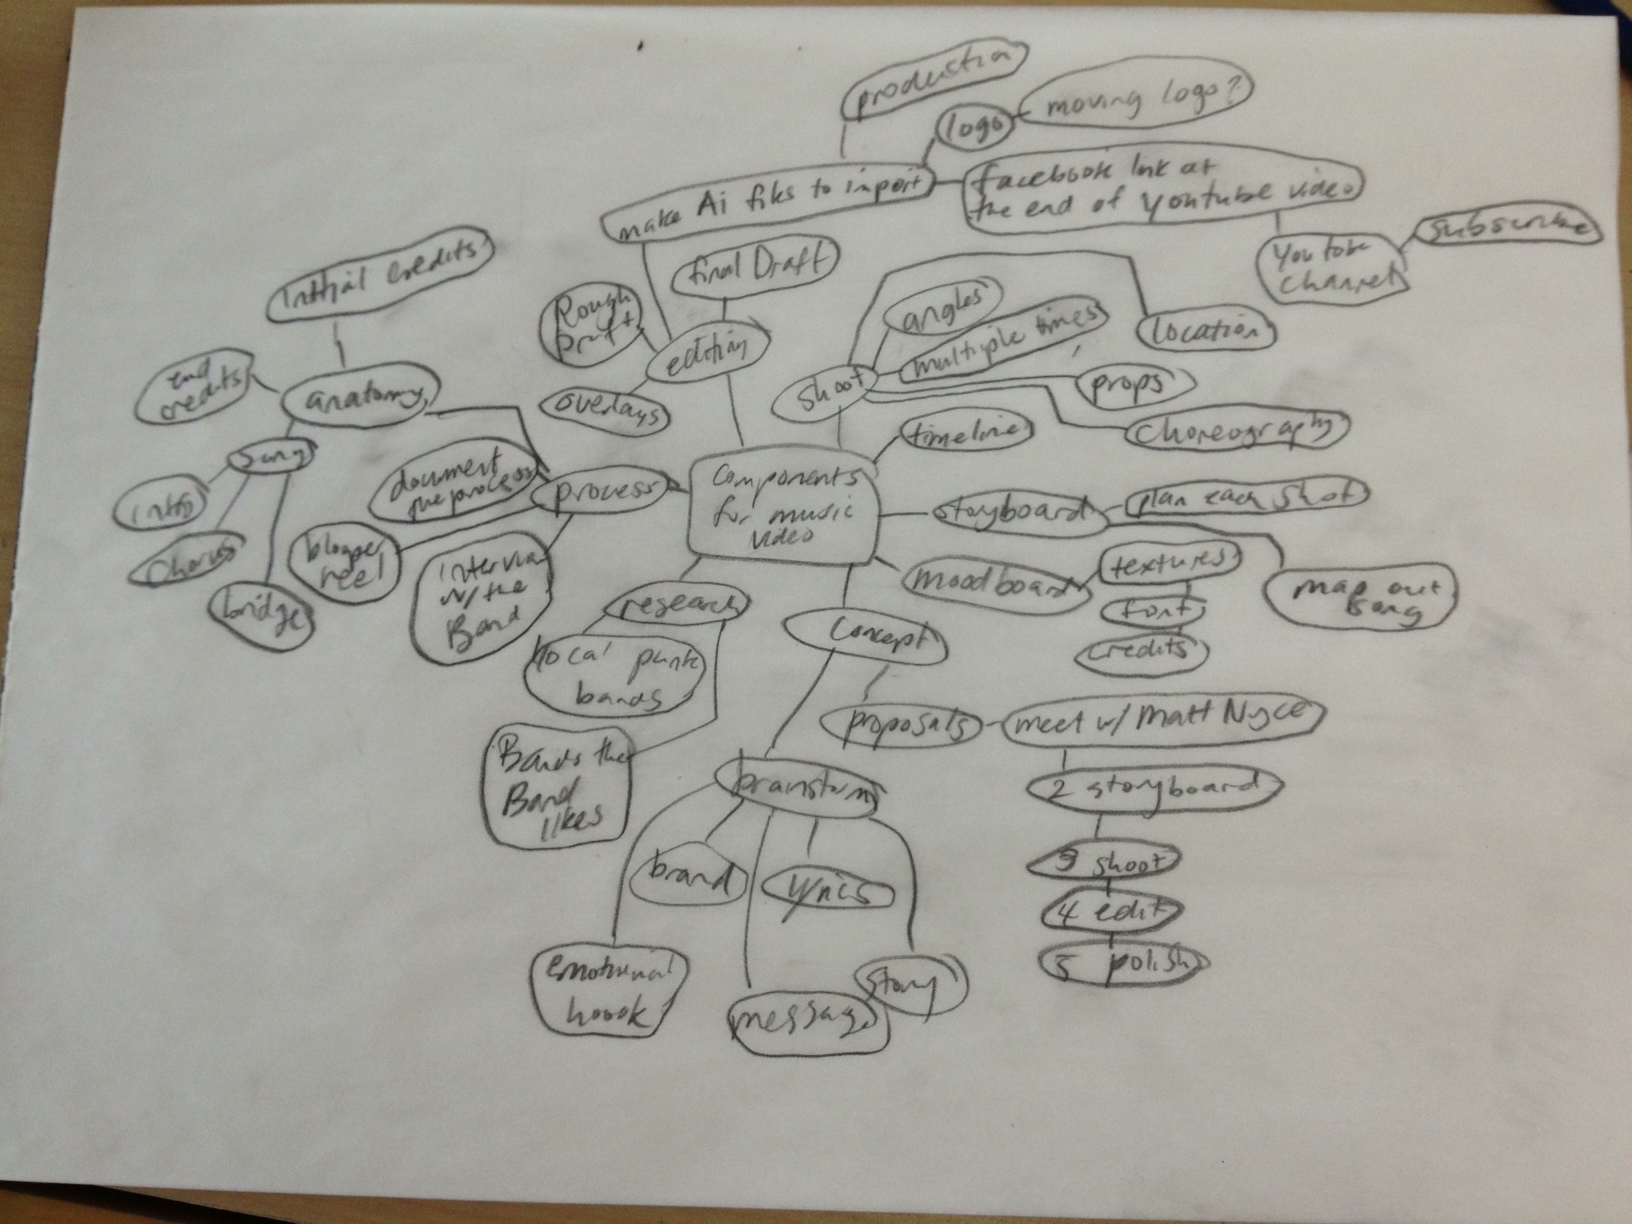 production
logo
moving logo?
make Ai files to import
facebook link at
the end of youtube video
YouTube
channel
subscribe
initial credits
final Draft
Rough
Draft
editing
overlays
angles
multiple times
location
shoot
props
choreography
end
credits
anatomy
song
intro
chorus
bridge
document
the process
process
interview
w/ the
Band
Components
for music
video
timeline
storyboard
plan each shot
map out
song
moodboard
textures
font
credits
research
local punk
bands
Bands the
Band
likes
concept
proposals
meet w/ Matt Nyce
2 storyboard
3 shoot
4 edit
5 polish
brainstorm
brand
lyrics
emotional
hoook
message
story